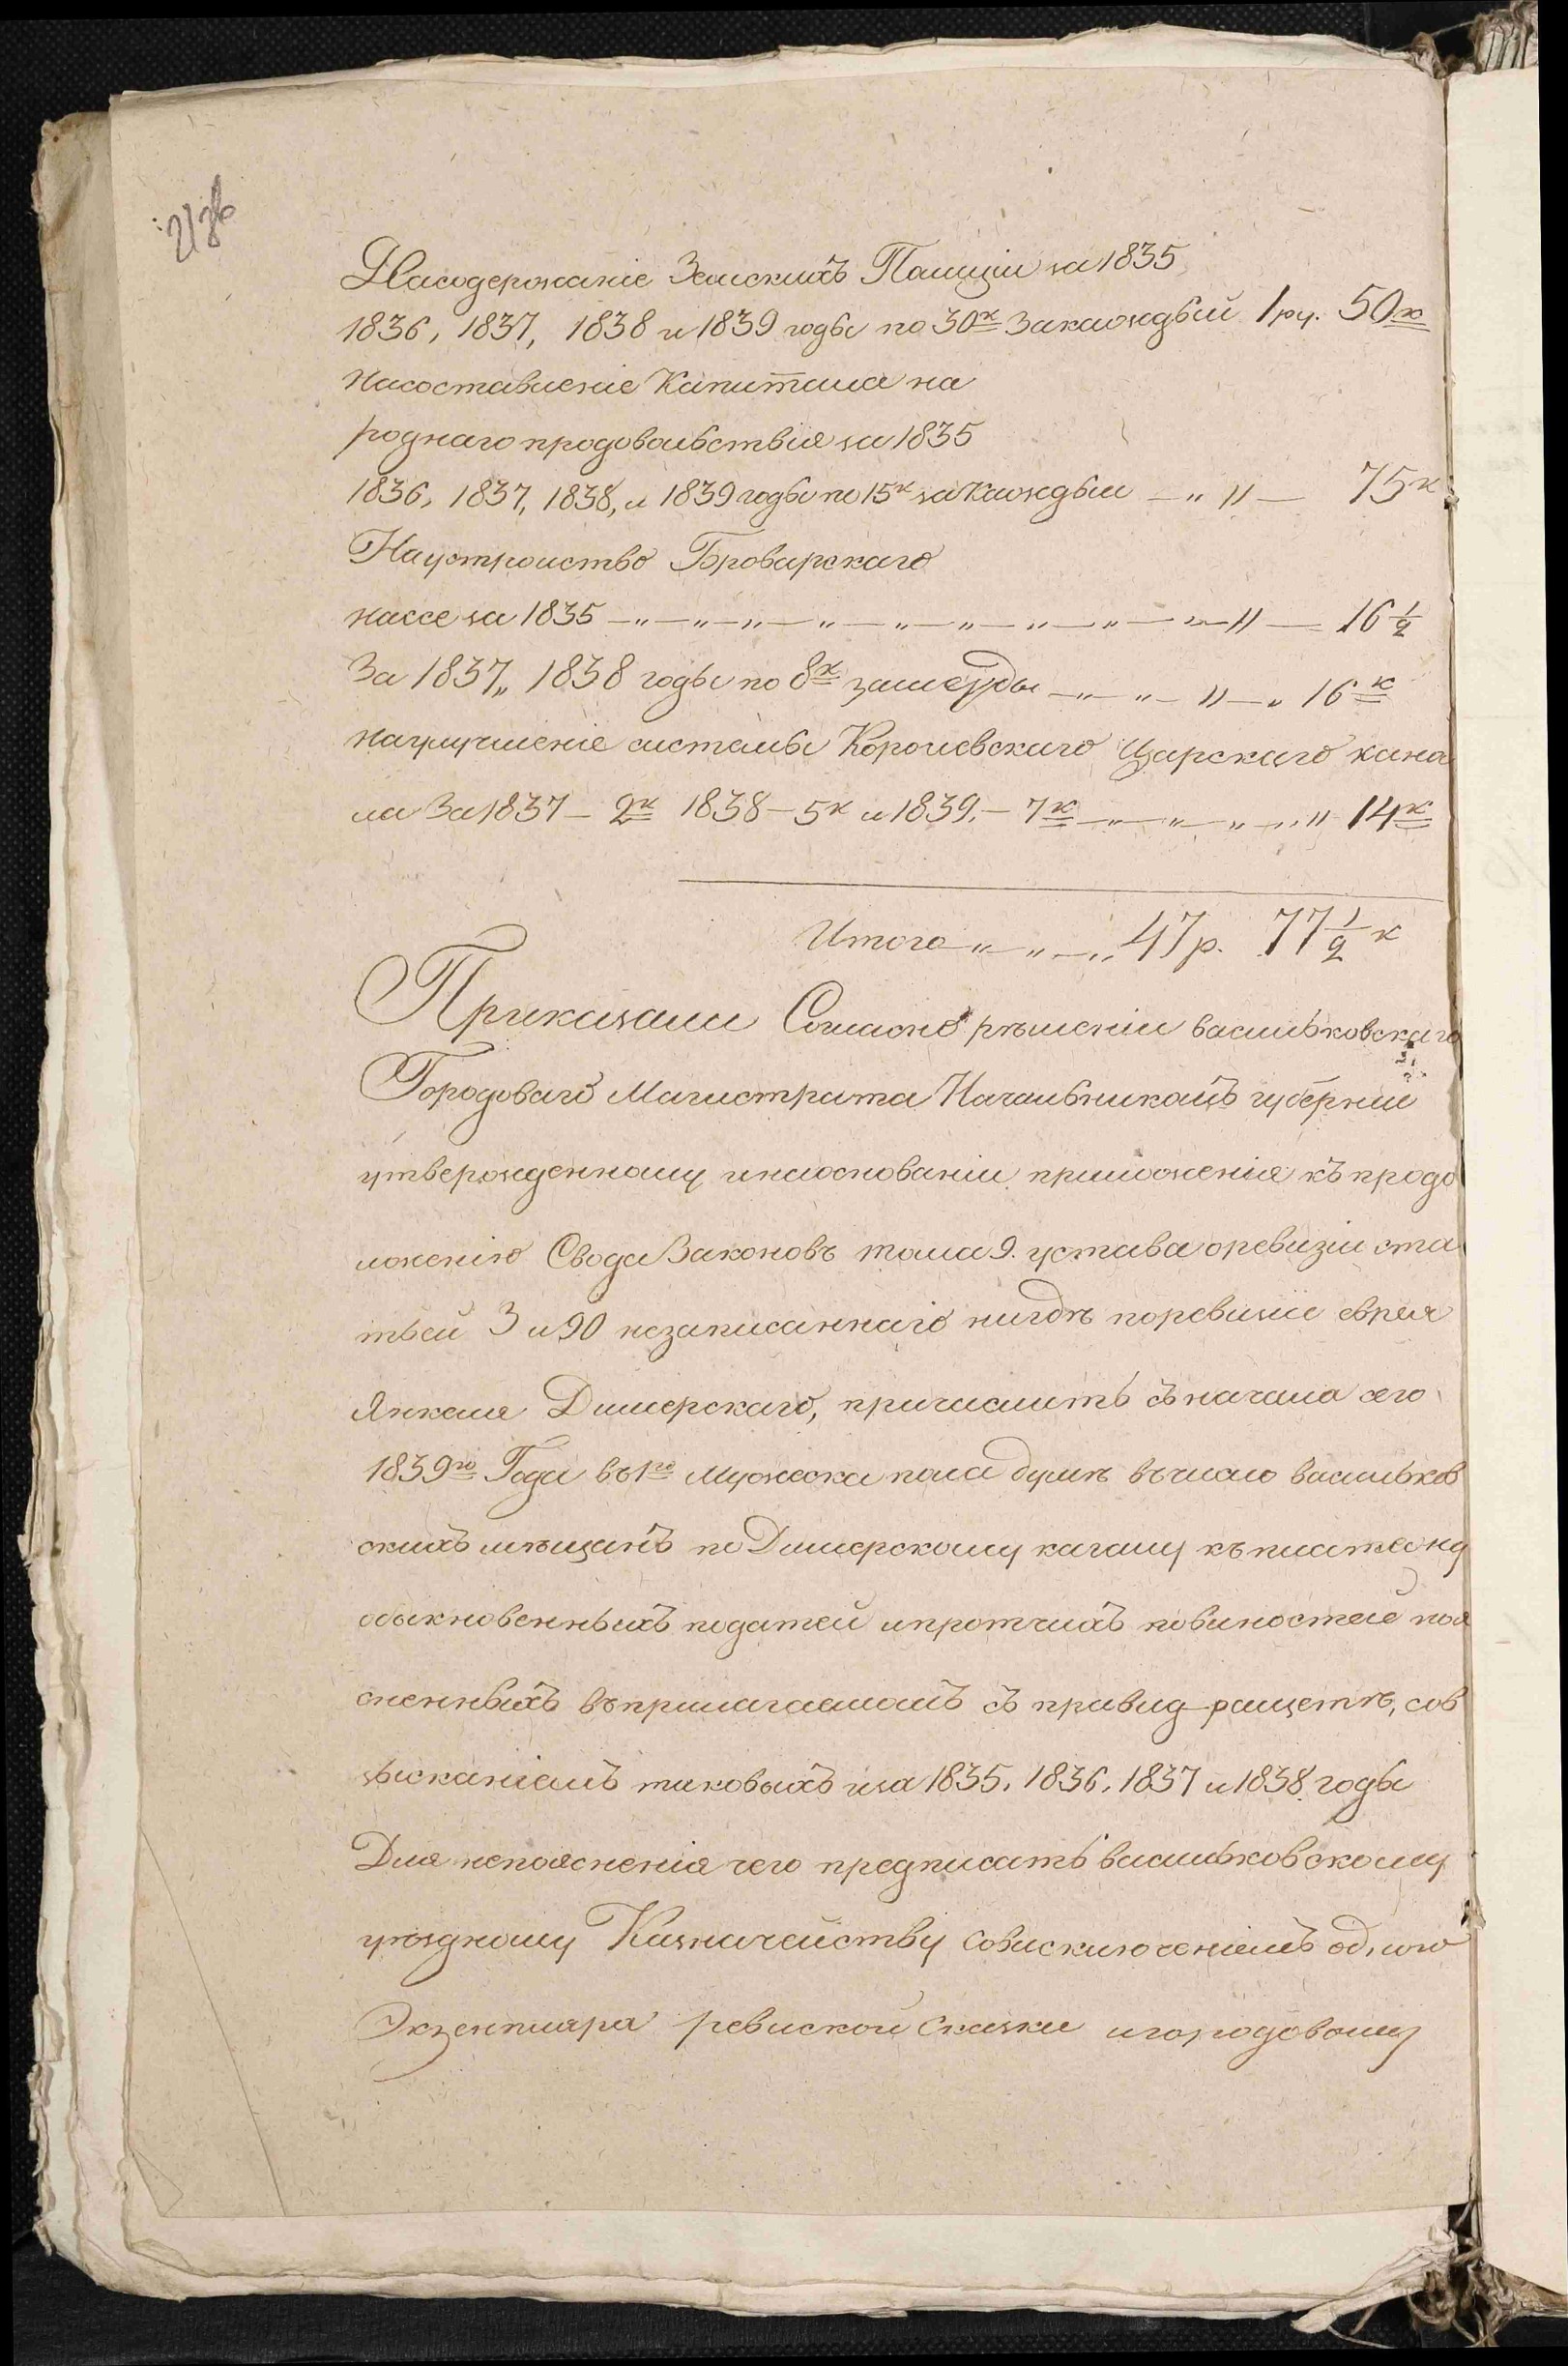 На содержаніе Земскихъ Полиціи за 1835
1836, 1837, 1838 и 1839 годы по 30к За каждый 1 ру. 50 к
На составленіе Капитала на
роднаго продовольствія за 1835
1836, 1837, 1838, и 1839 годы по 15к за каждый — „ „ — 75 к
На устроиство Броварскаго
шассе за 1835 — „ — „ — „ — „ — „ — „ — „ — „ — „ — 16 1/2
За 1837 „ 1838 годы по 8к — „ — „ — „ — „ 16 к
на улучшеніе системы Королевскаго Царскаго кана
ла За 1837 — 2к 1838 — 5к и 1839. — 7к — „ — „ — „ — „ 14 к
Итого „ — „ — „ 47 р. 77 1/2 к
Приказали Согласно рѣшеніи васильковскаго
Городоваго Магистрата Начальникомъ губерніи
утвержденному и на основаніи приложенія къ продо
ложенію Свода Законовъ тома 9. устава о ревизіи ста
тьей 3 и 90 незаписаннаго нигдѣ по ревизіи еврея
Янкеля Димерскаго, причислить съ начала сего
1839го Года въ 1го Мужеска пола душѣ въ число васильков
скихъ мѣщанъ по Димерскому кагалу къ платежу
обыкновенныхъ податей и протчихъ повиностей поя
сненныхъ въ прилагаемомъ съ правид ращетѣ, сов
зысканіемъ таковыхъ и за 1835. 1836. 1837 и 1838 годы
Для непоясненія чего предписать васильковскому
уѣздному Казначейству одного
Экземпляра ревиской Сказки и городовому